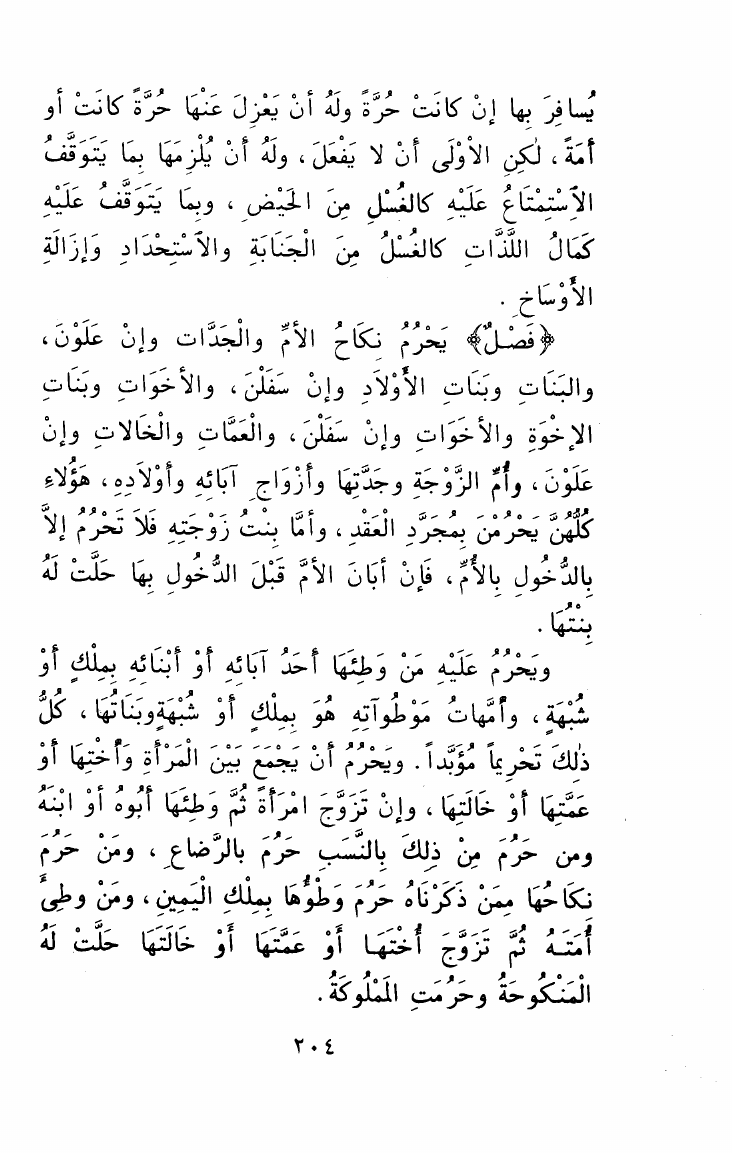 يُسافِرَ بِها إنْ كانَتْ حُرَّةً ولَهُ أنْ يَعْزِلَ عَنْهَا حُرَّةً كانَتْ أو
أمَةً، لٰكِنِ الأوْلَى أنْ لا يَفْعَلَ، ولَهُ أنْ يُلْزِمَهَا بِمَا يَتَوَقَّفُ
الاسْتِمْتَاعُ عَلَيْهِ كالغُسْلِ مِنَ الحَيْضِ، وبِمَا يَتَوَقَّفُ عَلَيْهِ
كَمَالُ اللَّذَّاتِ كالغُسْلُ مِنَ الْجَنَابَةِ والاسْتِحْدَادِ وَإزَالَةِ
الأَوْسَاخِ.
﴿فَصْلٌ﴾ يَحْرُمُ نِكَاحُ الأمِّ والْجَدَّات وإنْ عَلَوْنَ،
والبَنَاتِ وبَنَاتِ الأَوْلاَدِ وإنْ سَفَلْنَ، والأخَوَاتِ وبَنَاتِ
الإخْوَةِ والأخَوَاتِ وإنْ سَفَلْنَ، والْعَمَّاتِ والْخَالاتِ وإنْ
عَلَوْنَ، وأُمِّ الزَّوْجَةِ وجَدَّتِهَا وأزْوَاجِ آبَائِهِ وأوْلاَدِهِ، هَؤُلاءِ
كلُّهُنَّ يَحْرُمْنَ بِمُجَرَّدِ الْعَقْدِ، وأمَّا بِنْتُ زَوْجَتِهِ فَلاَ تَحْرُمُ إلاَّ
بِالدُّخُولِ بِالأُمِّ، فَإنْ أبَانَ الأمَّ قَبْلَ الدُّخُولِ بِهَا حَلَّتْ لَهُ
بِنْتُهَا.
ويَحْرُمُ عَلَيْهِ مَنْ وَطِئَهَا أحَدُ آبَائِهِ أوْ أبْنَائِهِ بِمِلْكٍ أوْ
شُبْهَةٍ، وأمَّهاتُ مَوْطُوآتِهِ هُوَ بِمِلْكٍ أوْ شُبْهَةٍوبَنَاتُهَا، كُلُّ
ذٰلِكَ تَحْرِيماً مُؤَبَّداً. ويَحْرُمُ أنْ يَجْمَعَ بَيْنَ الْمَرْأةِ وَأخْتِهَا أوْ
عَمَّتِهَا أوْ خَالَتِهَا، وإنْ تَزَوَّجَ امْرَأةً ثُمَّ وَطِئَهَا أبُوهُ أوْ ابْنَهُ
ومن حَرُمَ مِنْ ذٰلِكَ بِالنَّسَبِ حَرُمَ بالرَّضاعِ، ومَنْ حَرُمَ
نِكَاحُهَا مِمَنْ ذَكَرْنَاهُ حَرُمَ وَطْؤُهَا بِمِلْكِ الْيَمِينِ، ومَنْ وطِئَ
أمَتَهُ ثُمَّ تَزَوَّجَ أُخْتَهَا أوْ عَمَّتَهَا أوْ خَالَتَهَا حَلَّتْ لَهُ
الْمَنْكُوحَةُ وحَرُمَتِ المَمْلُوكَةُ.
٢٠٤